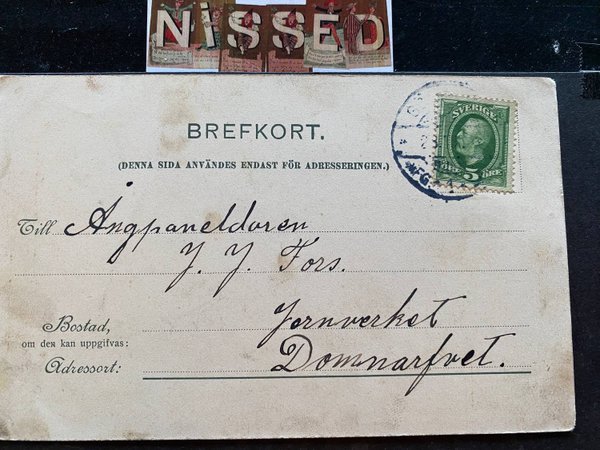 NiSSED
BREFKORT.
(DENNA SIDA ANVÄNDES ENDAST FÖR ADRESSERINGEN.)
SVERIGE
5 ÖRE
Till Ångpaneldaren
J. J. Fors.
Bostad,
om den kan uppgifvas:
Jernverket
Adressort:
Domnarfvet.